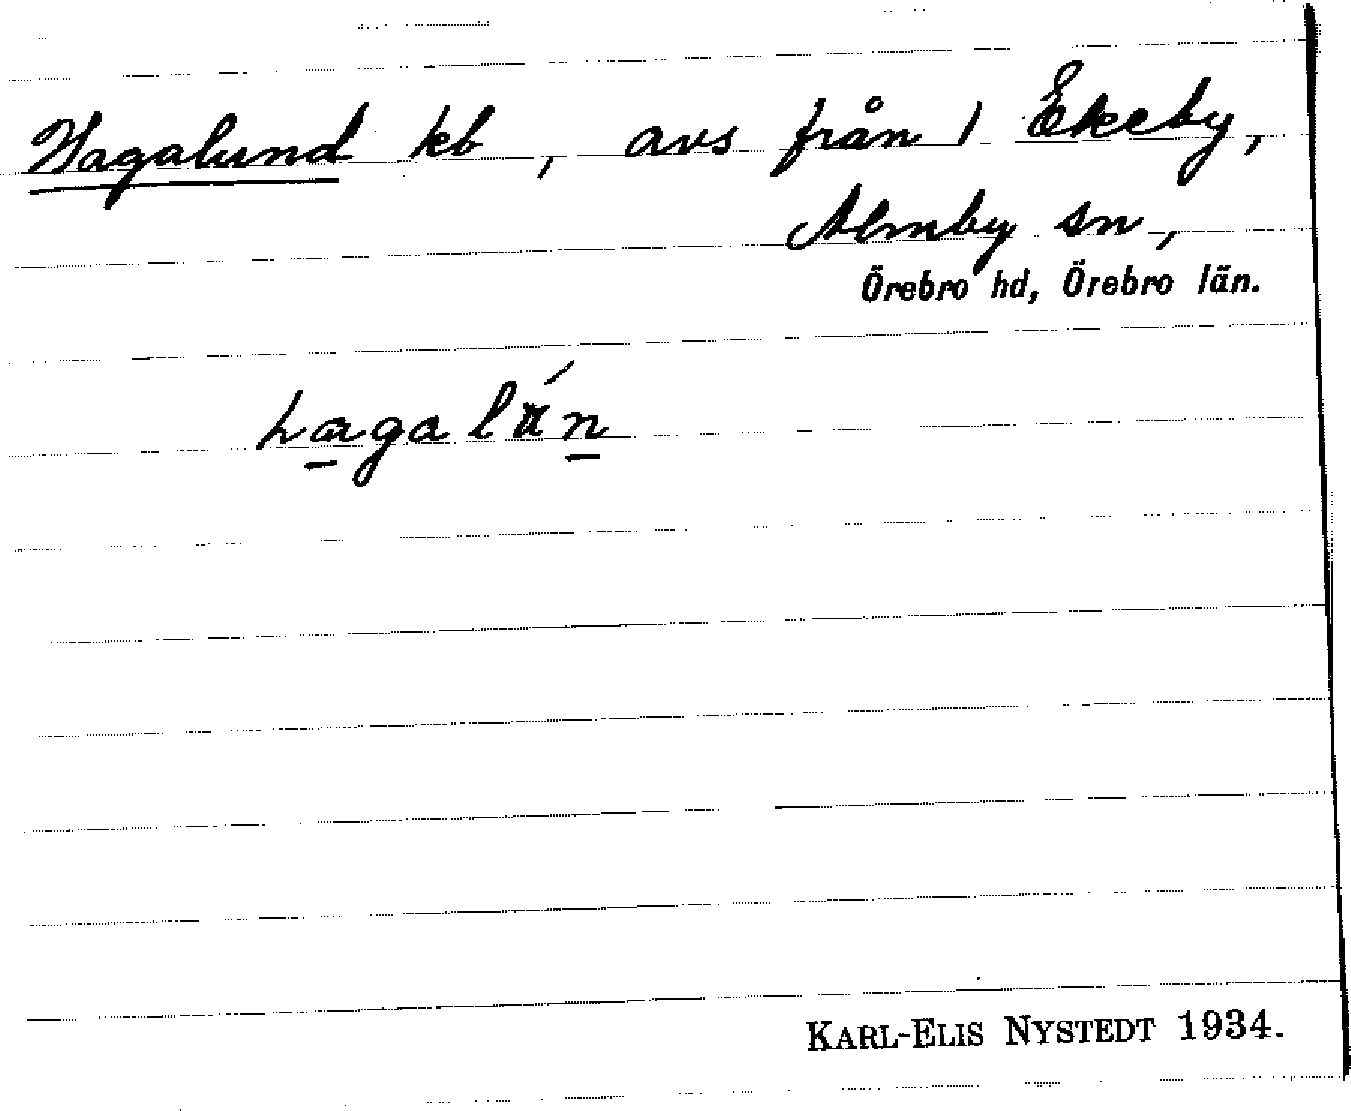 Hagalund kb, avs från 1 Ekeby,
Almby sn,
Örebro hd, Örebro län.
KARL-ELIS NYSTEDT 1934.